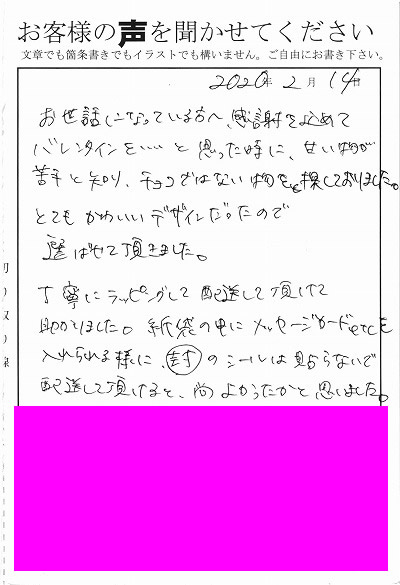 お客様の声を聞かせてください
文章でも箇条書きでもイラストでも構いません。ご自由にお書き下さい。
2020年2月14日
お世話になっている方へ、感謝を込めて
バレンタインを…と思った時に、甘い物が
苦手と知り、チョコではない物を探しておりました。
とてもかわいいデザインだったので
選ばせて頂きました。
丁寧にラッピングして配送して頂けて
助かりました。紙袋の中にメッセージカードetcを
入れられる様に、封のシールは貼らないで
配送して頂けると、尚よかったかと思いました。
切り取り線